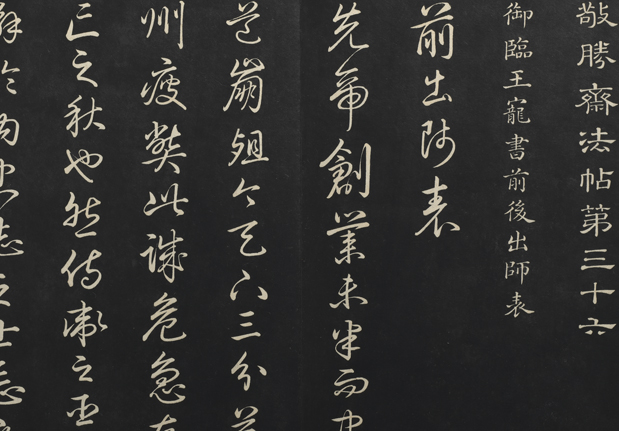 敬勝齋法帖第三十六
御臨王寵書前後出師表
前出師表
先帝創業未半而中
道崩殂今天下三分益
州疲弊此誠危急存
亡之秋也然侍衞之臣
懈於內忠志之士忘